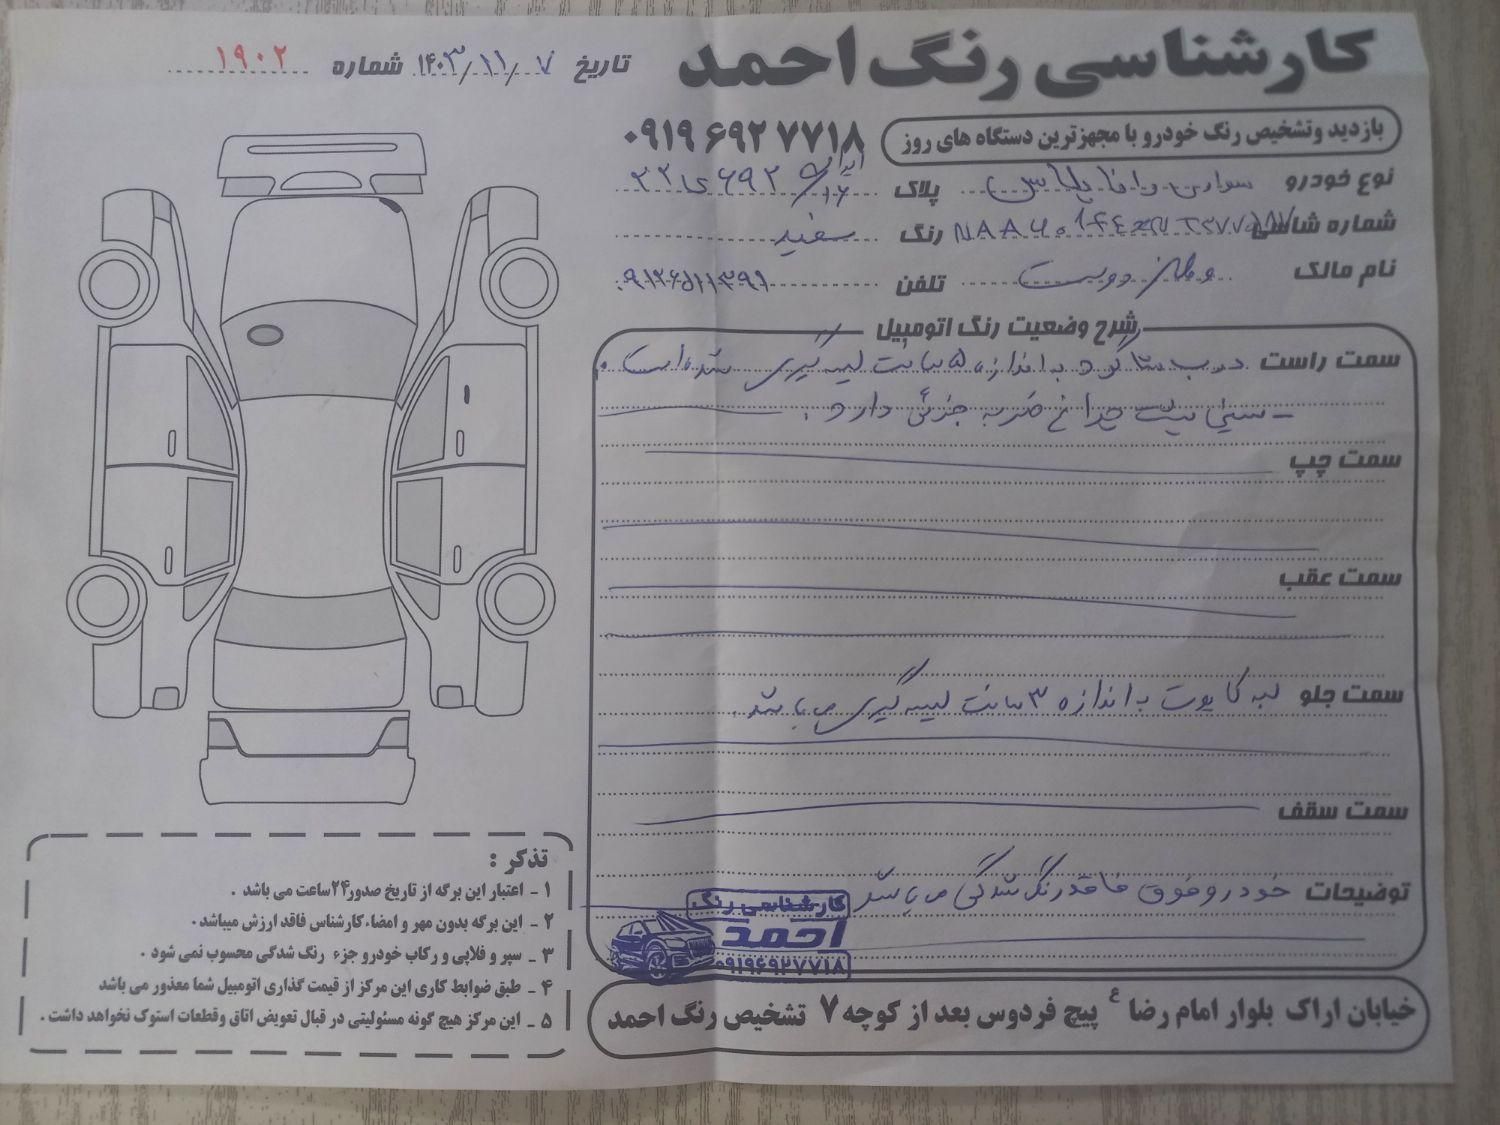 کارشناسی رنگ احمد
تاریخ ۱۴۰۳/۱۱/۷ شماره ۱۹۰۲
بازدید وتشخیص رنگ خودرو با مجهزترین دستگاه های روز
۰۹۱۹ ۶۹۲ ۷۷۱۸
نوع خودرو سواری پلاس پلاک ۲۲ی۶۹۲
شماره شاسی رنگ سفید
نام مالک تلفن
شرح وضعیت رنگ اتومبیل
سمت راست درب شاگرد به اندازه ۵ سانت لیسه گیری شده است.
- سینی پشت چراغ ضربه جزئی دارد.
سمت چپ
سمت عقب
سمت جلو لبه کاپوت به اندازه ۳ سانت لیسه گیری می باشد.
سمت سقف
توضیحات خودرو فوق فاقد رنگ شدگی می باشد
کارشناسی رنگ
احمد
۰۹۱۹۶۹۲۷۷۱۸
خیابان اراک بلوار امام رضا ع پیچ فردوس بعد از کوچه ۷ تشخیص رنگ احمد
تذکر :
۱ - اعتبار این برگه از تاریخ صدور۲۴ساعت می باشد .
۲ - این برگه بدون مهر و امضاء کارشناس فاقد ارزش میباشد .
۳ - سپر و قلابی و رکاب خودرو جزء رنگ شدگی محسوب نمی شود .
۴ - طبق ضوابط کاری این مرکز از قیمت گذاری اتومبیل شما معذور می باشد
۵ - این مرکز هیچ گونه مسئولیتی در قبال تعویض اتاق وقطعات استوک نخواهد داشت .